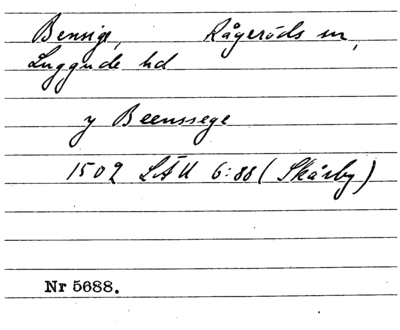 Bensige, Rågeröds sn,
Luggude hd
y Beenssege
1502 LÄU 6:88 (Skårby)
Nr 5688.